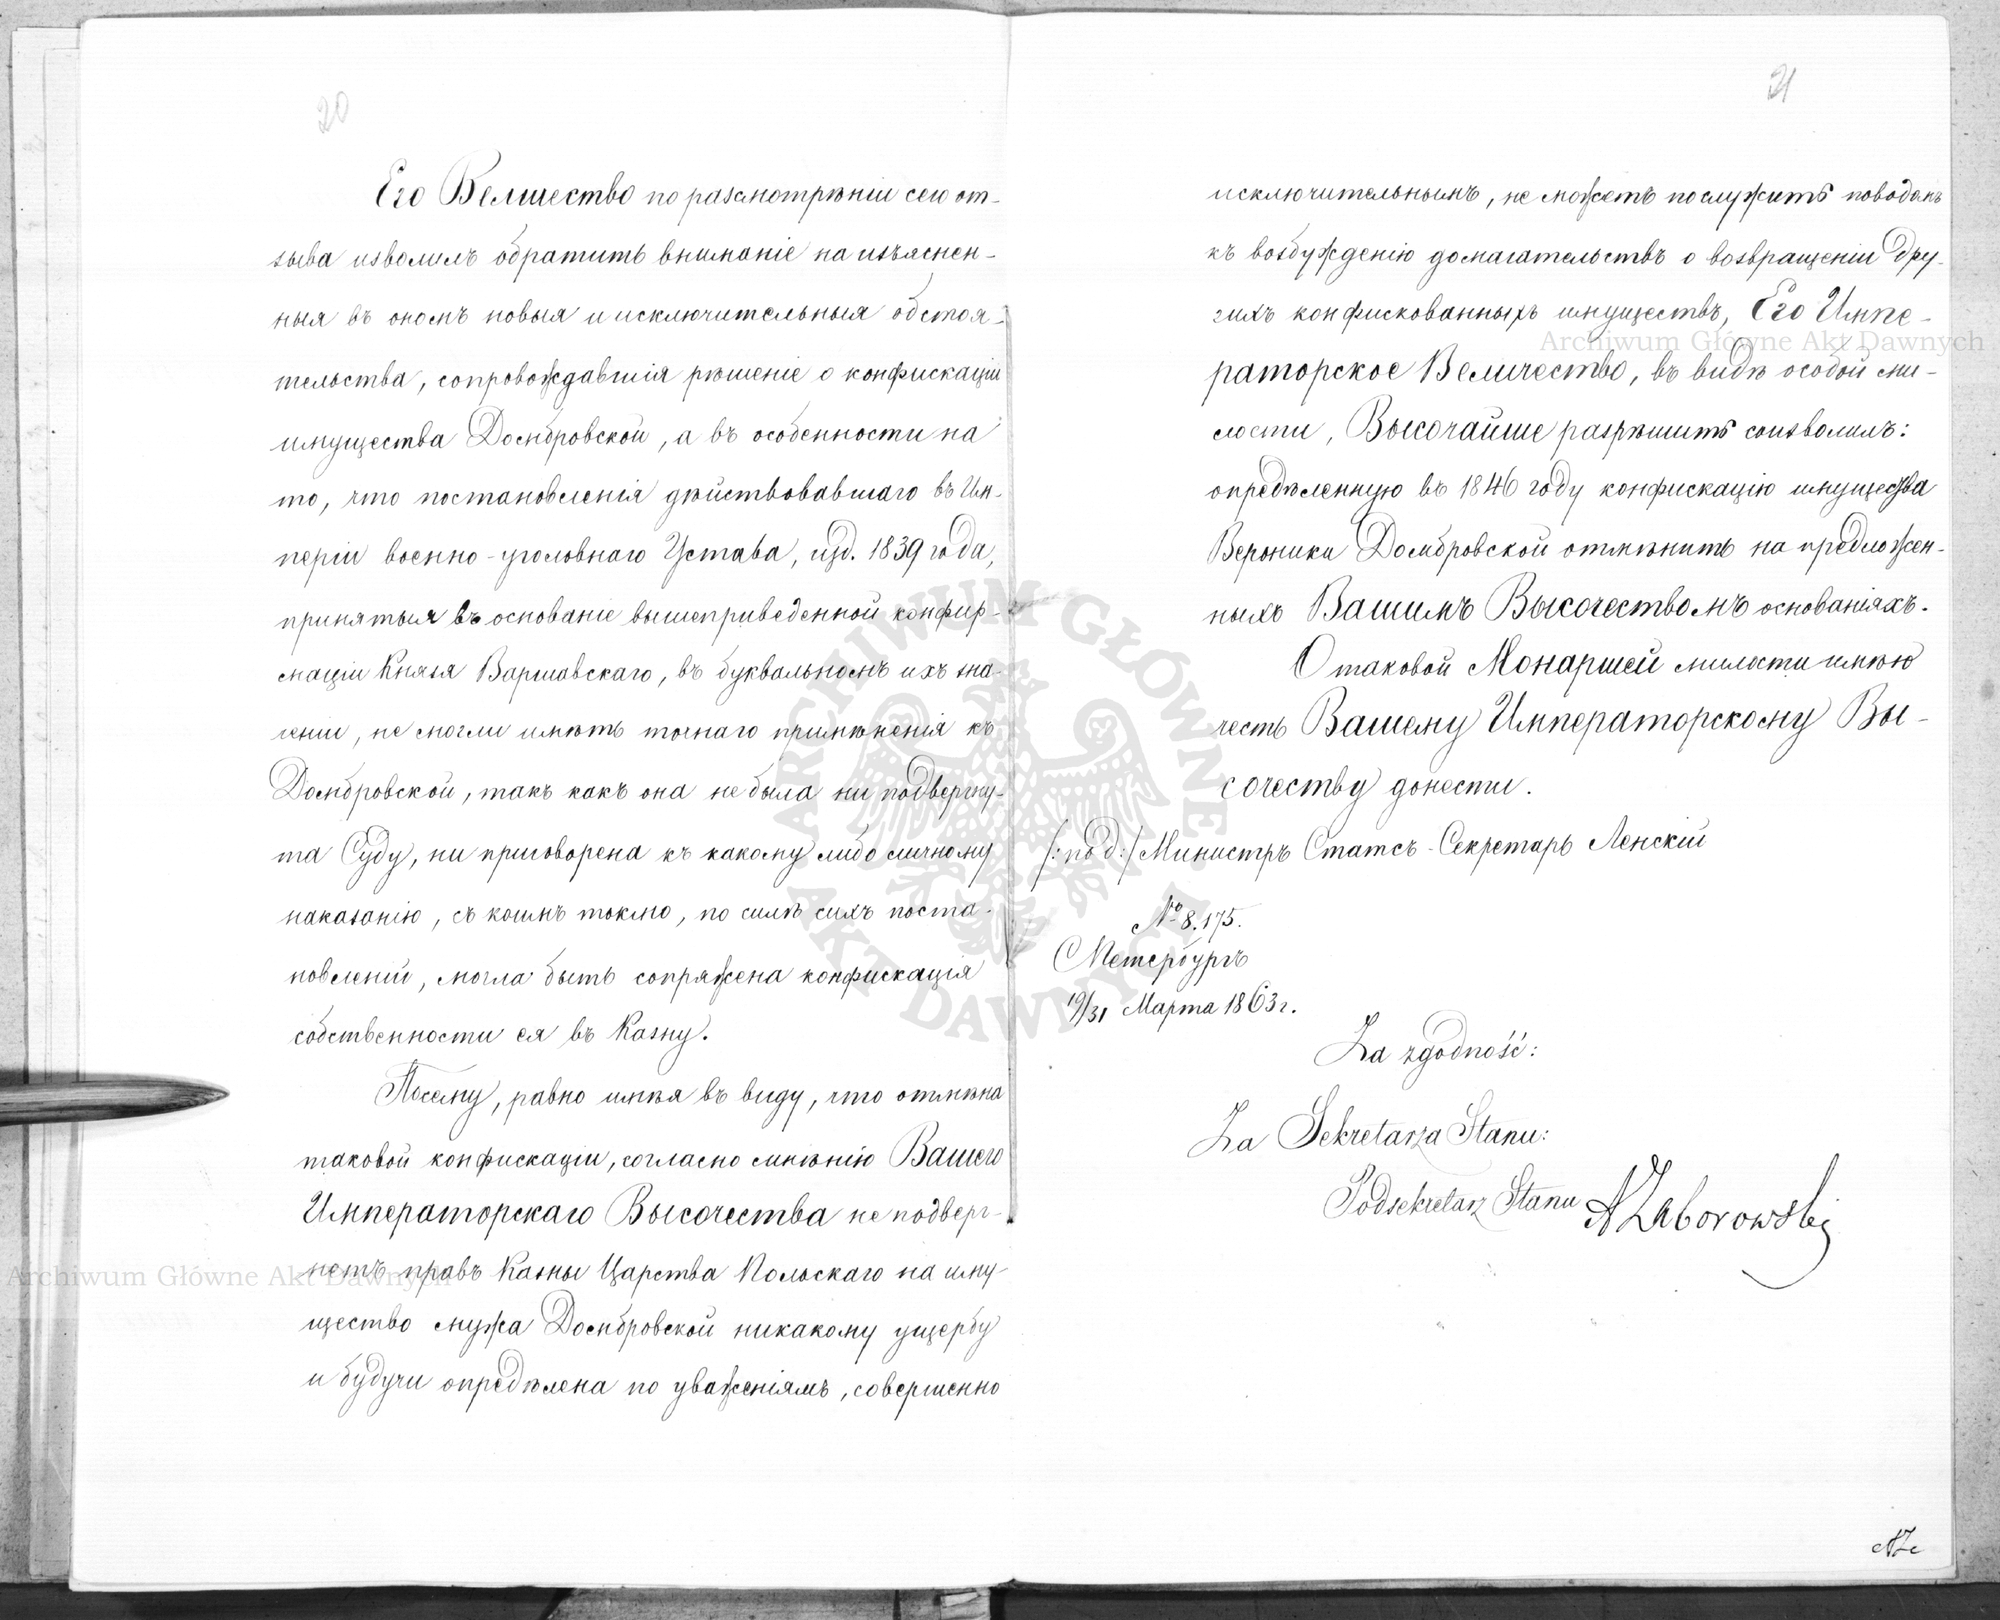 20
Его Величество по разсмотрѣніи сего от-
зыва изволилъ обратить вниманіе на изъяснен-
ныя въ ономъ новыя и исключительныя обстоя-
тельства, сопровождавшія рѣшеніе о конфискаціи
имущества Домбровской, а въ особенности на
то, что постановленія дѣйствовавшаго въ Им-
періи военно-уголовнаго Устава, изд. 1839 года,
принятыя въ основаніе вышеприведенной конфир-
маціи Князя Варшавскаго, въ буквальномъ ихъ зна-
ченіи, не могли имѣть точнаго примѣненія къ
Домбровской, такъ какъ она не была ни подвергну-
та Суду, ни приговорена къ какому либо личному
наказанію, съ коимъ токмо, по силѣ сихъ поста-
новленій, могла быть сопряжена конфискація
собственности ея въ Казну.
Посему, равно имѣя въ виду, что отмѣна
таковой конфискаціи, согласно мнѣнію Вашего
Императорскаго Высочества не подверг-
нетъ правъ Казны Царства Польскаго на иму-
щество мужа Домбровской никакому ущербу
и будучи опредѣлена по уваженіямъ, совершенно
21
исключительнымъ, не можетъ послужить поводомъ
къ возбужденію домагательствъ о возвращеніи дру-
гихъ конфискованныхъ имуществъ, Его Импе-
раторское Величество, въ видѣ особой ми-
лости, Высочайше разрѣшить соизволилъ:
опредѣленную въ 1846 году конфискацію имущества
Вероники Домбровской отмѣнить на предложен-
ныхъ Вашимъ Высочествомъ основаніяхъ.
О таковой Монаршей милости имѣю
честь Вашему Императорскому Вы-
сочеству донести.
/:под:/ Министръ Статсъ-Секретарь Ленскій
№ 8.175.
СПетербургъ
19/31 Марта 1863 г.
Za zgodność:
Za Sekretarza Stanu:
Podsekretarz Stanu AZaborowski
AZ
Archiwum Główne Akt Dawnych
Archiwum Główne Akt Dawnych
ARCHIWUM GŁÓWNE AKT DAWNYCH